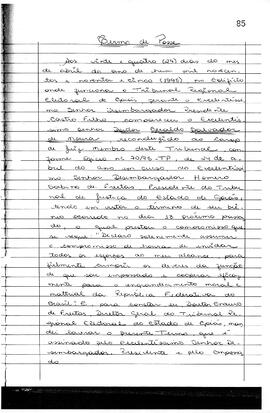 85
Termo de Posse
Aos vinte e quatro (24) dias do mes
de abril do ano de hum mil noecen-
tos e noventa e cinco (1995), no Edifício
onde funciona o Tribunal Regional
Eleitoral de Goiás, perante o Excelentíssi-
mo Senhor Desembargador Presidente
Castro Filho, compareceu o Excelentís-
simo Senhor Doutor Geraldo Salvador
de Moura reconduzido ao cargo
de Juiz Membro deste Tribunal, con-
forme ofício nº 70/95-TP, de 24 de a-
bril do ano em curso no Excelentíssi-
mo Senhor Desembargador Homero
Sabino de Freitas, Presidente do Tribu-
nal de Justiça do Estado de Goiás,
tendo em vista o término de seu biê-
nio ocorrido no dia 13 próximo passa-
do, o qual prestou o compromisso que
se segue: "Declaro solenemente assumir
o compromisso de honra de envidar
todos os esforços ao meu alcance para
fielmente cumprir os deveres da função
de que sou empossado e cooperar eficaz-
mente para o engrandecimento moral e
material da República Federativa do
Brasil". E, para constar eu Doutor Enauro
de Freitas Diretor Geral do Tribunal Re-
gional Eleitoral do Estado de Goiás, man-
dei lavrar o presente Termo que é
assinado pelo Excelentíssimo Senhor De-
sembargador Presidente e pelo empossa-
do